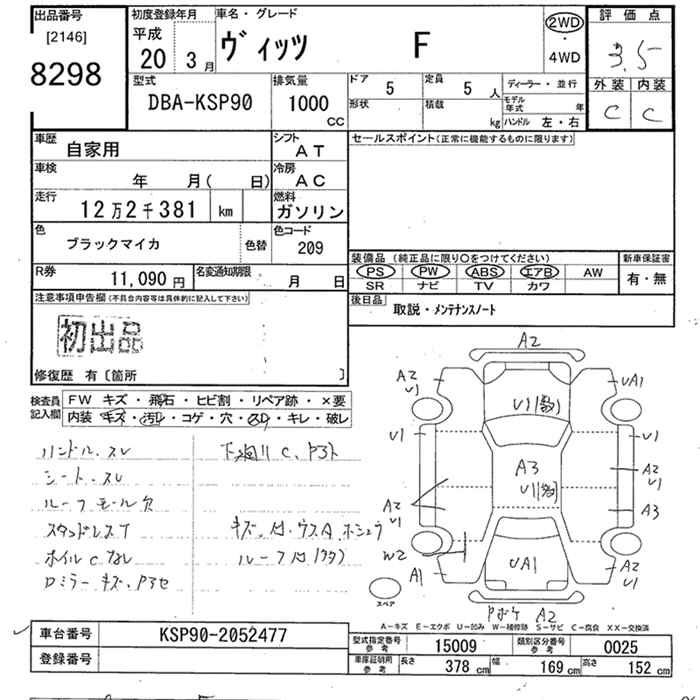 出品番号 初度登録年月 車名・グレード 2WD 評価点
[2146] 平成 ヴィッツ F ・ 3.5
8298 20 3月 4WD
型式 排気量 ドア 5 定員 5人 ディーラー・並行 外装 内装
DBA-KSP90 1000 cc 形状 積載 kg モデル年式 年 C C
ハンドル 左・右
車歴 自家用 シフト AT セールスポイント(正常に機能するものに限ります)
車検 年 月( 日) 冷房 AC
走行 12万2千381 km 燃料 ガソリン
色 ブラックマイカ 色替 色コード 209
装備品 (純正品に限り〇をつけてください) 新車保証書
R券 11,090円 名変通知期限 月 日 PS PW ABS エアB AW 有・無
SR ナビ TV カワ
注意事項申告欄(不具合内容等は具体的に記入して下さい) 後日品 取説・メンテナンスノート
初出品
修復歴 有〔箇所 〕
検査員記入欄 FW キズ・飛石・ヒビ割・リペア跡・×要
内装 キズ・汚レ・コゲ・穴・スレ・キレ・破レ
ハンドル、スレ
シート、スレ
ルーフモール欠
スタッドレスT
ホイルCなし
ロミラーキズ、
A2
A2 U1 UA1
U1 U1
A3 A2 U1
U1
A2 U1 A3
W2
A1 UA1 A2 U1
スペア
A2
A-キズ E-エクボ U-凹み W-補修跡 S-サビ C-腐食 XX-交換済
車台番号 KSP90-2052477 型式指定番号 参考 15009 類別区分番号 参考 0025
登録番号 車庫証明用 参考 長さ 378 cm 幅 169 cm 高さ 152 cm